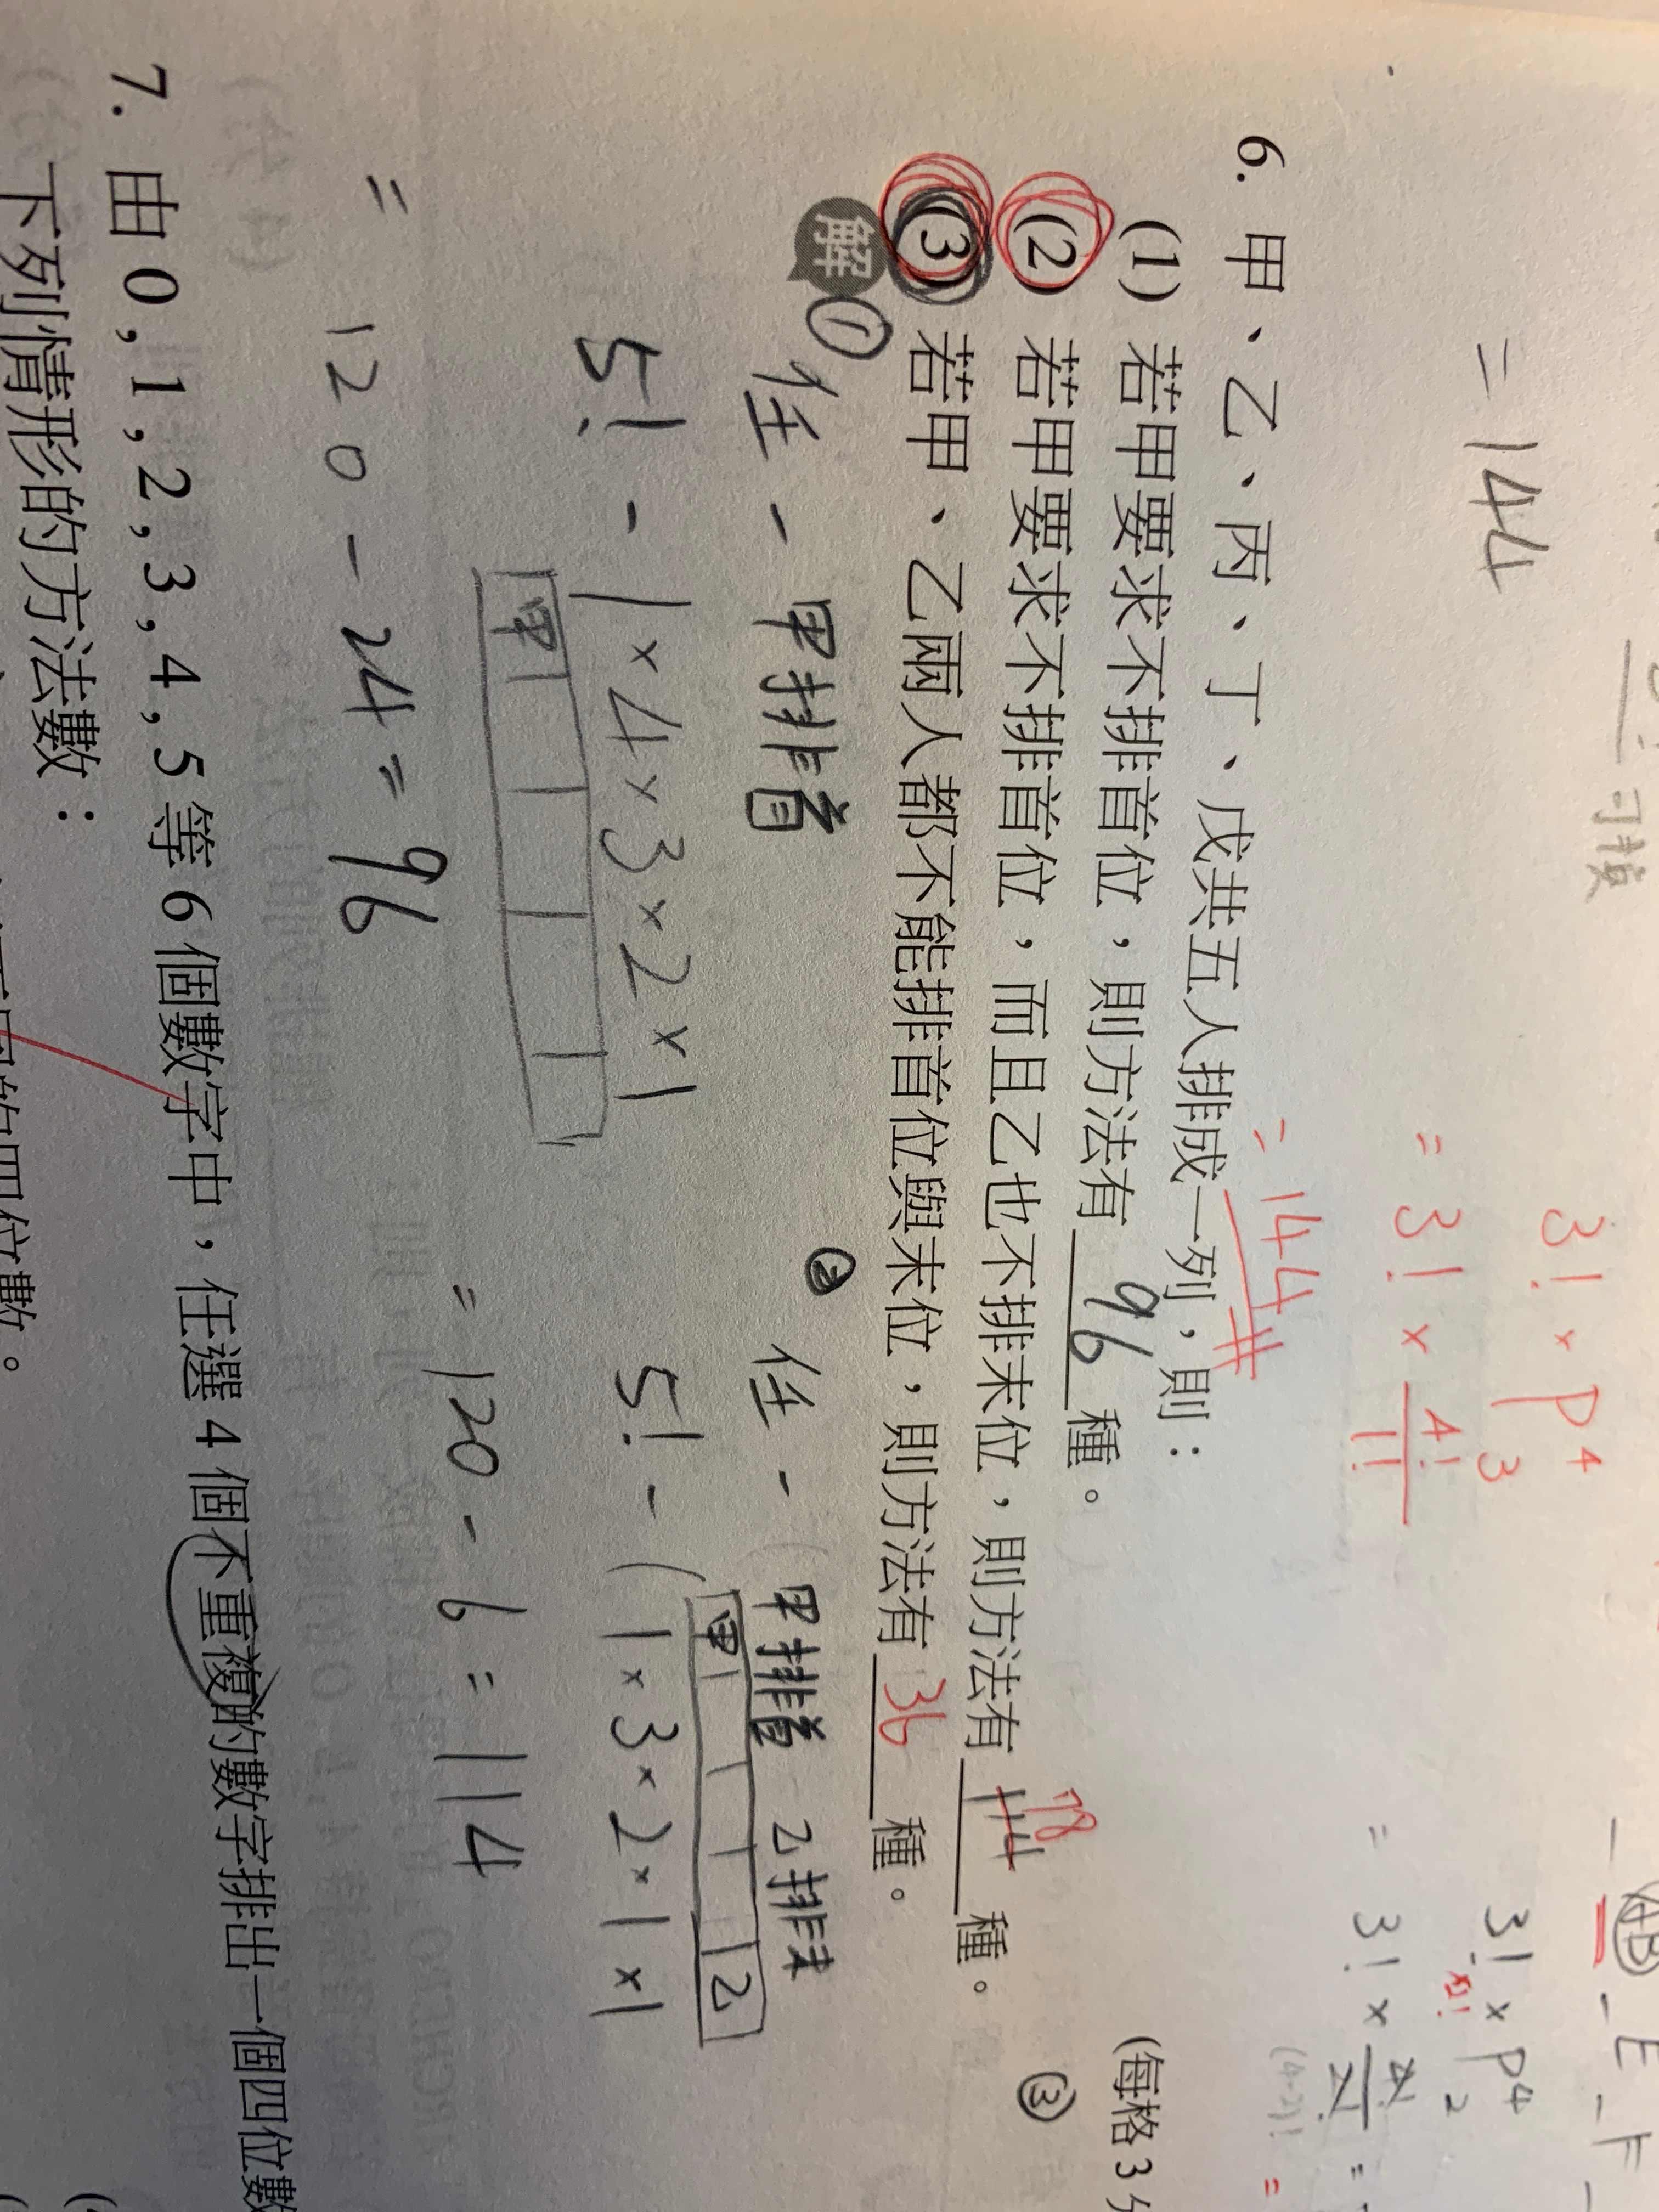 = 144
3! × P⁴₃
= 3! × 4!/1!
= 144 #
AB _ E _ F _
3! × P⁴₂
×2!
= 3! × 4!/2! =
(4-2)!
6. 甲、乙、丙、丁、戊共五人排成一列,則:
(每格3分
(1) 若甲要求不排首位,則方法有 96 種。
(2) 若甲要求不排首位,而且乙也不排末位,則方法有 114 78 種。
(3) 若甲、乙兩人都不能排首位與末位,則方法有 36 種。
解
① 任 - 甲排首
5! - 1×4×3×2×1
甲
= 120 - 24 = 96
② 任 - (甲排首 乙排末
甲 乙
5! - (1×3×2×1×1
= 120 - 6 = 114
③
7. 由 0 , 1 , 2 , 3 , 4 , 5 等 6 個數字中,任選 4 個不重複的數字排出一個四位數
下列情形的方法數:
四位數。